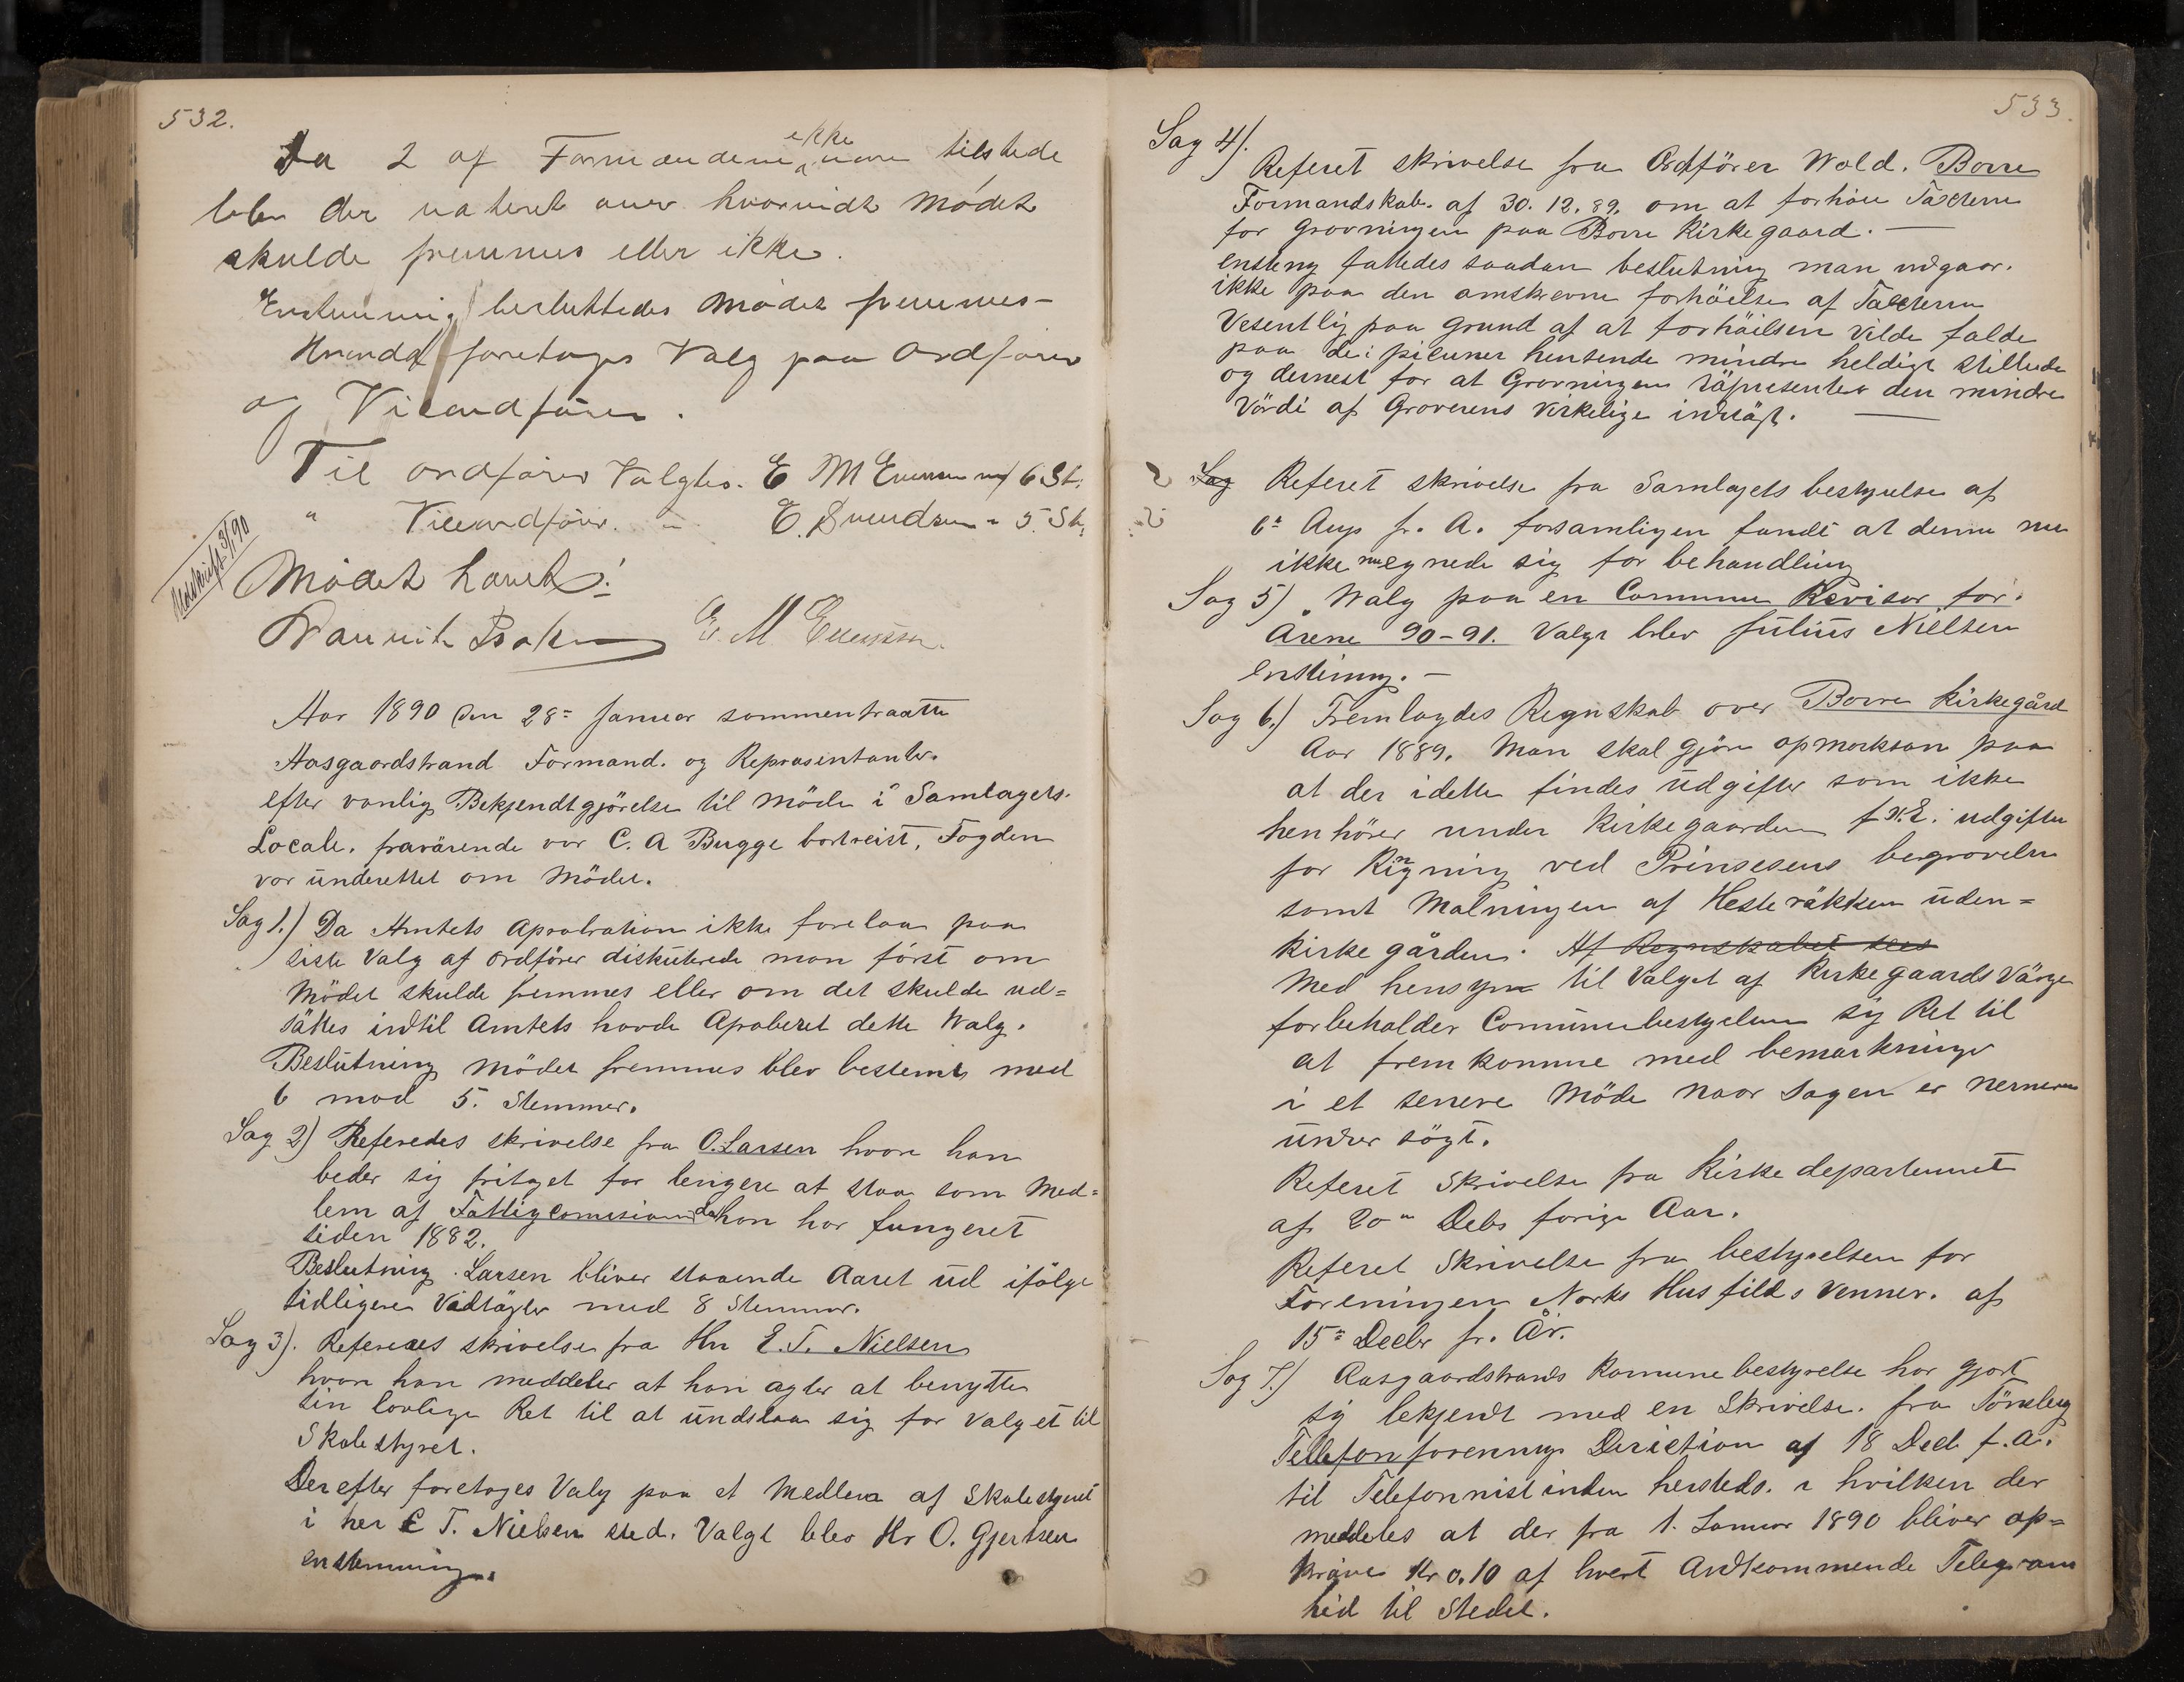 532.
Da 2 af Formændene ikke vare tilstede
blev der voteret over hvorvidt Mödet
skulde fremmes eller ikke.
Enstemmig besluttedes Mödet fremmes –
Hvorda foretoges Valg paa Ordförer
og Viceordförer.
Til ordförer Valgtes. E M Evensen m/ 6 St.
" Viceordförer. " E. Svendsen " 5. St.
Udskrift 3/1 90
Mödet hævet!
E. M Evensen.
Aar 1890 den 28= Januar sammentraatte
Aasgaardstrand Formand. og Repræsentanter.
efter vanlig Bekjendtgjörelse til Möde i Samlagets.
Locale. fraværende var C. A Bugge bortreist, Fogden
var underettet om Mödet.
Sag 1.) Da Amtets Aprobration ikke forelaa paa
siste Valg af ordförer diskuterede man först om
Mödet skulde fremmes eller om det skulde ud=
sättes indtil Amtets havde Aproberet dette Walg.
Beslutning Mödet fremmes blev bestemt med
6 mod 5. Stemmer.
Sag 2) Referedes skrivelse fra O. Larsen hvore han
beder sig fritaget for lengere at staa som Med=
lem af Fattigcomisionen da han har fungeret
siden 1882.
Beslutning. Larsen bliver staaende Aaret ud ifölge
tidligere Vedtägter med 8 Stemmer.
Sag 3). Refereres skrivelse fra Hr E. T. Nielsen
hvore han meddeler at han agter at benytte
sin lovlige Ret til at undslaa sig for Valget til
Skolestyret.
Derefter foretoges Valg paa et Medlem af Skolestyret
i her E T. Nielsen sted. Valgt blev Hr O. Gjertsen
enstemmig.
533.
Sag 4).
Referet skrivelse fra Ordförer Wold. Borre
Formandskab. af 30. 12. 89. om at forhöie Taxterne
for Gravningen paa Borre Kirkegaard. —
ensteng fattedes saadan beslutning man indgaar.
ikke paa den omskrevne forhöielse af Taxterne
Vesentlig paa Grund af at forhöilsen vilde falde
paa de i henseende mindre heldigt stillede
og dernest for at Gravningen räpresenter den mindre
Värdi af Graverens virkelige indtägt. —
Sag Referet skrivelse fra Samlagets bestyrelse af
6= Aug f. A. forsamligen fandt at denne nu
ikke egnede sig for behandling
Sag 5) Walg paa en Commune Revisor for.
Arene 90-91. Valgt blev Julius Nielsen
enstemmig. –
Sag 6.) Fremlagdes Regnskab over Borre Kirkegård
Aar 1889. Man skal gjöre opmerksom paa
at der i dette findes udgifter som ikke
henhörer under Kirkegaarden f. X. E. udgifter
for Ringning ved Prinsesens begravelse
samt Malningen af Hesteräkken uden=
kirkegården. Af Regnskabet sees
Med hensyn til Valget af Kirkegaards Värge
forbeholder Comunebestyrelsen sig Ret til
at fremkomme med bemærkninger
i et senere Möde naar Sagen er nermere
under sögt.
Referet Skrivelse fra Kirkedepartemet
af 20= Debr forige Aar.
Referet Skrivelse fra bestyrelsen for
Foreningen Norks Husflids Venner. af
15= Decbr f. År.
Sag 7.) Aasgaardstrands Komunebestyrelse har gjort
sig bekjendt med en Skrivelse. fra Tönsberg
Tellefonforenings Diriction af 18 Dec f. a.
til Telefonnistinden hersteds. i hvilken der
meddeles at der fra 1. Januar 1890 bliver op=
kräve Kr 0.10 af hvert Andkommende Telegram
hid til Stedet.